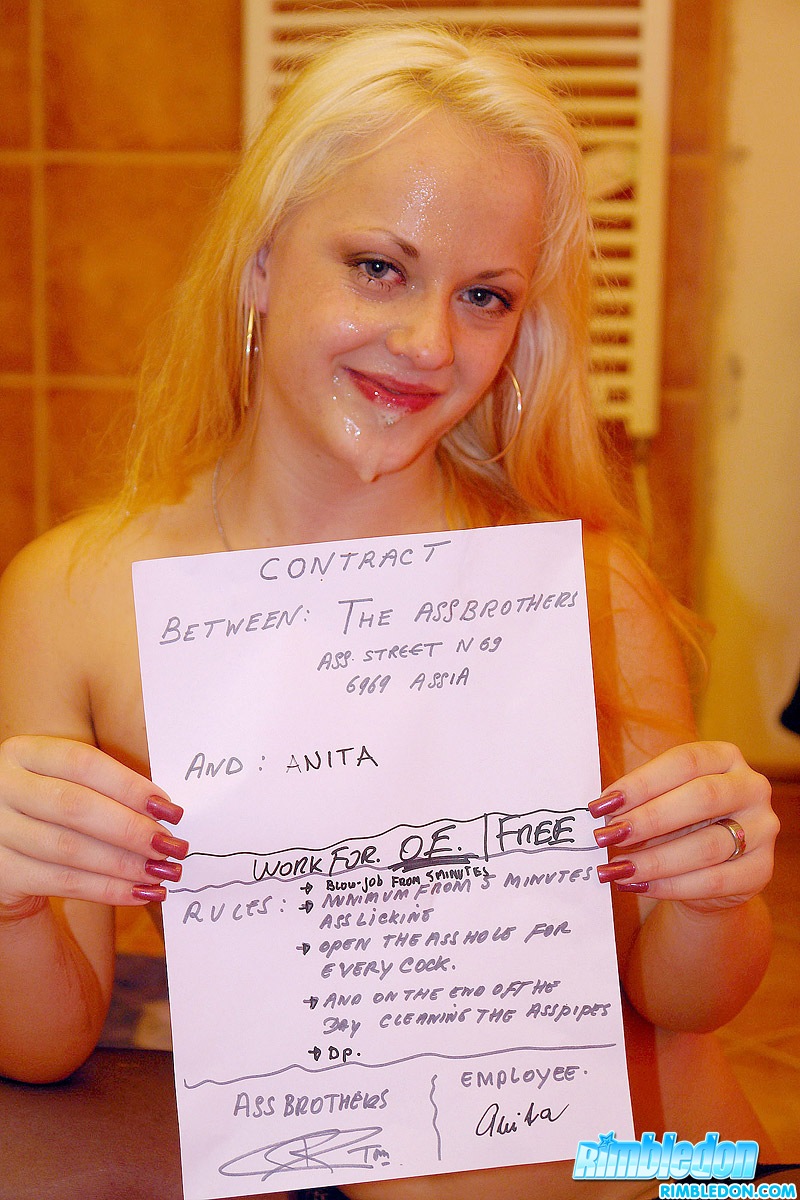 CONTRACT
BETWEEN: THE ASSBROTHERS
ASS. STREET N 69
6969 ASSIA
AND: ANITA
WORK FOR. O€. | FREE
→ BLOW-JOB FROM 5 MINUTES
RULES: → MINIMUM FROM 5 MINUTES
ASSLICKING
→ OPEN THE ASSHOLE FOR
EVERY COCK.
→ AND ON THE END OFF THE
DAY CLEANING THE ASSPIPES
→ DP.
ASSBROTHERS
EMPLOYEE.
Anita
Tm
Rimbledon
RIMBLEDON.COM